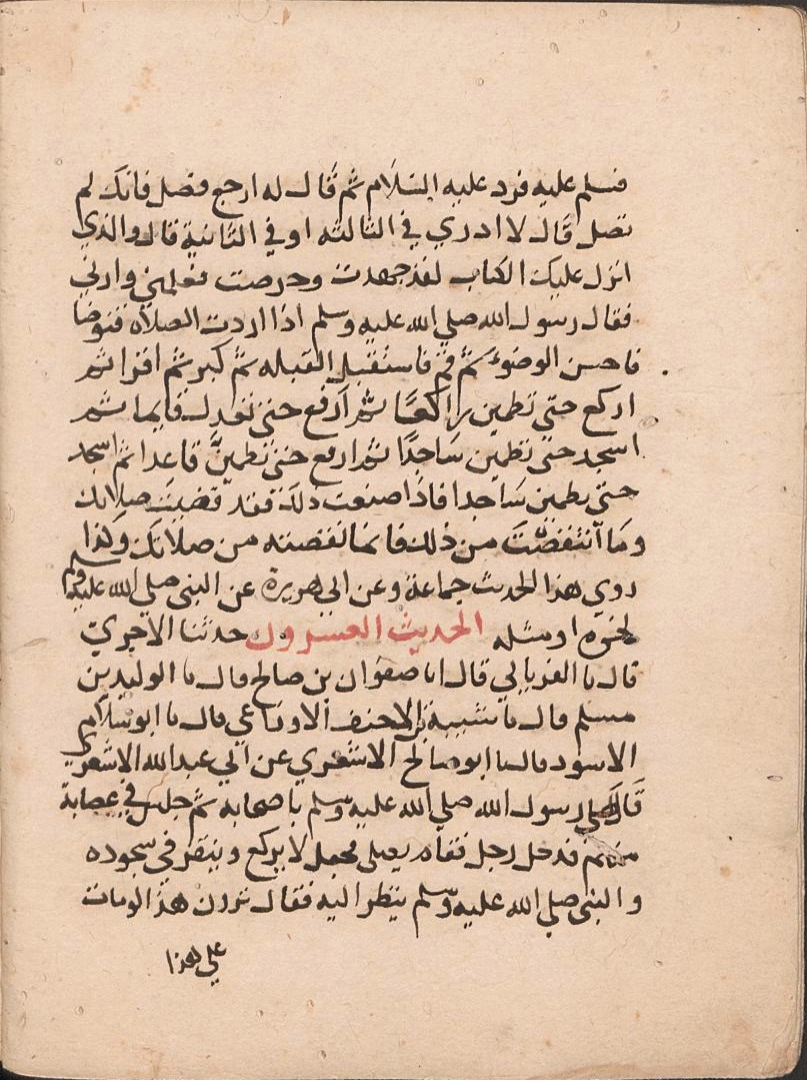 فسلم عليه فرد عليه السلام ثم قال له ارجع فصل فانك لم
تصل قال لا ادري في الثالثه او في الثانية قال والذي
انزل عليك الكتاب لقد جهدت وحرصت فعلمني وارني
فقال رسول الله صلي الله عليه وسلم اذا اردت الصلاه فتوضا
فاحسن الوضوء ثم قم فاستقبل القبله ثم كبر ثم اقرا ثم
اركع حتي تطمين راكعا ثم ارفع حتي تعدل قايما ثم
اسجد حتي تطمين ساجدا ثم ارفع حتي تطمين قاعدا ثم اسجد
حتي تطمين ساجدا فاذا صنعت ذلك فقد قضيت صلاتك
وما انتقصت من ذلك فانما تنقصه من صلاتك وكذا
روي هذا الحديث جماعة وعن ابي هريرة عن النبي صلي الله عليه وسلم
نحوه او مثله الحديث العشرون حدثنا الاجري
قال نا الفريابي قال انا صفوان بن صالح قال نا الوليد بن
مسلم قال نا شيبة بن الاحنف الاوزاعي قال نا ابو سلام
الاسود قال نا ابو صالح الاشعري عن ابي عبد الله الاشعري
قال صلي رسول الله صلي الله عليه وسلم باصحابه ثم جلس في عصابة
منهم فدخل رجل فقام يصلي فجعل لا يركع وينقر في سجوده
والنبي صلي الله عليه وسلم ينظر اليه فقال ترون هذا لو مات
علي هذا